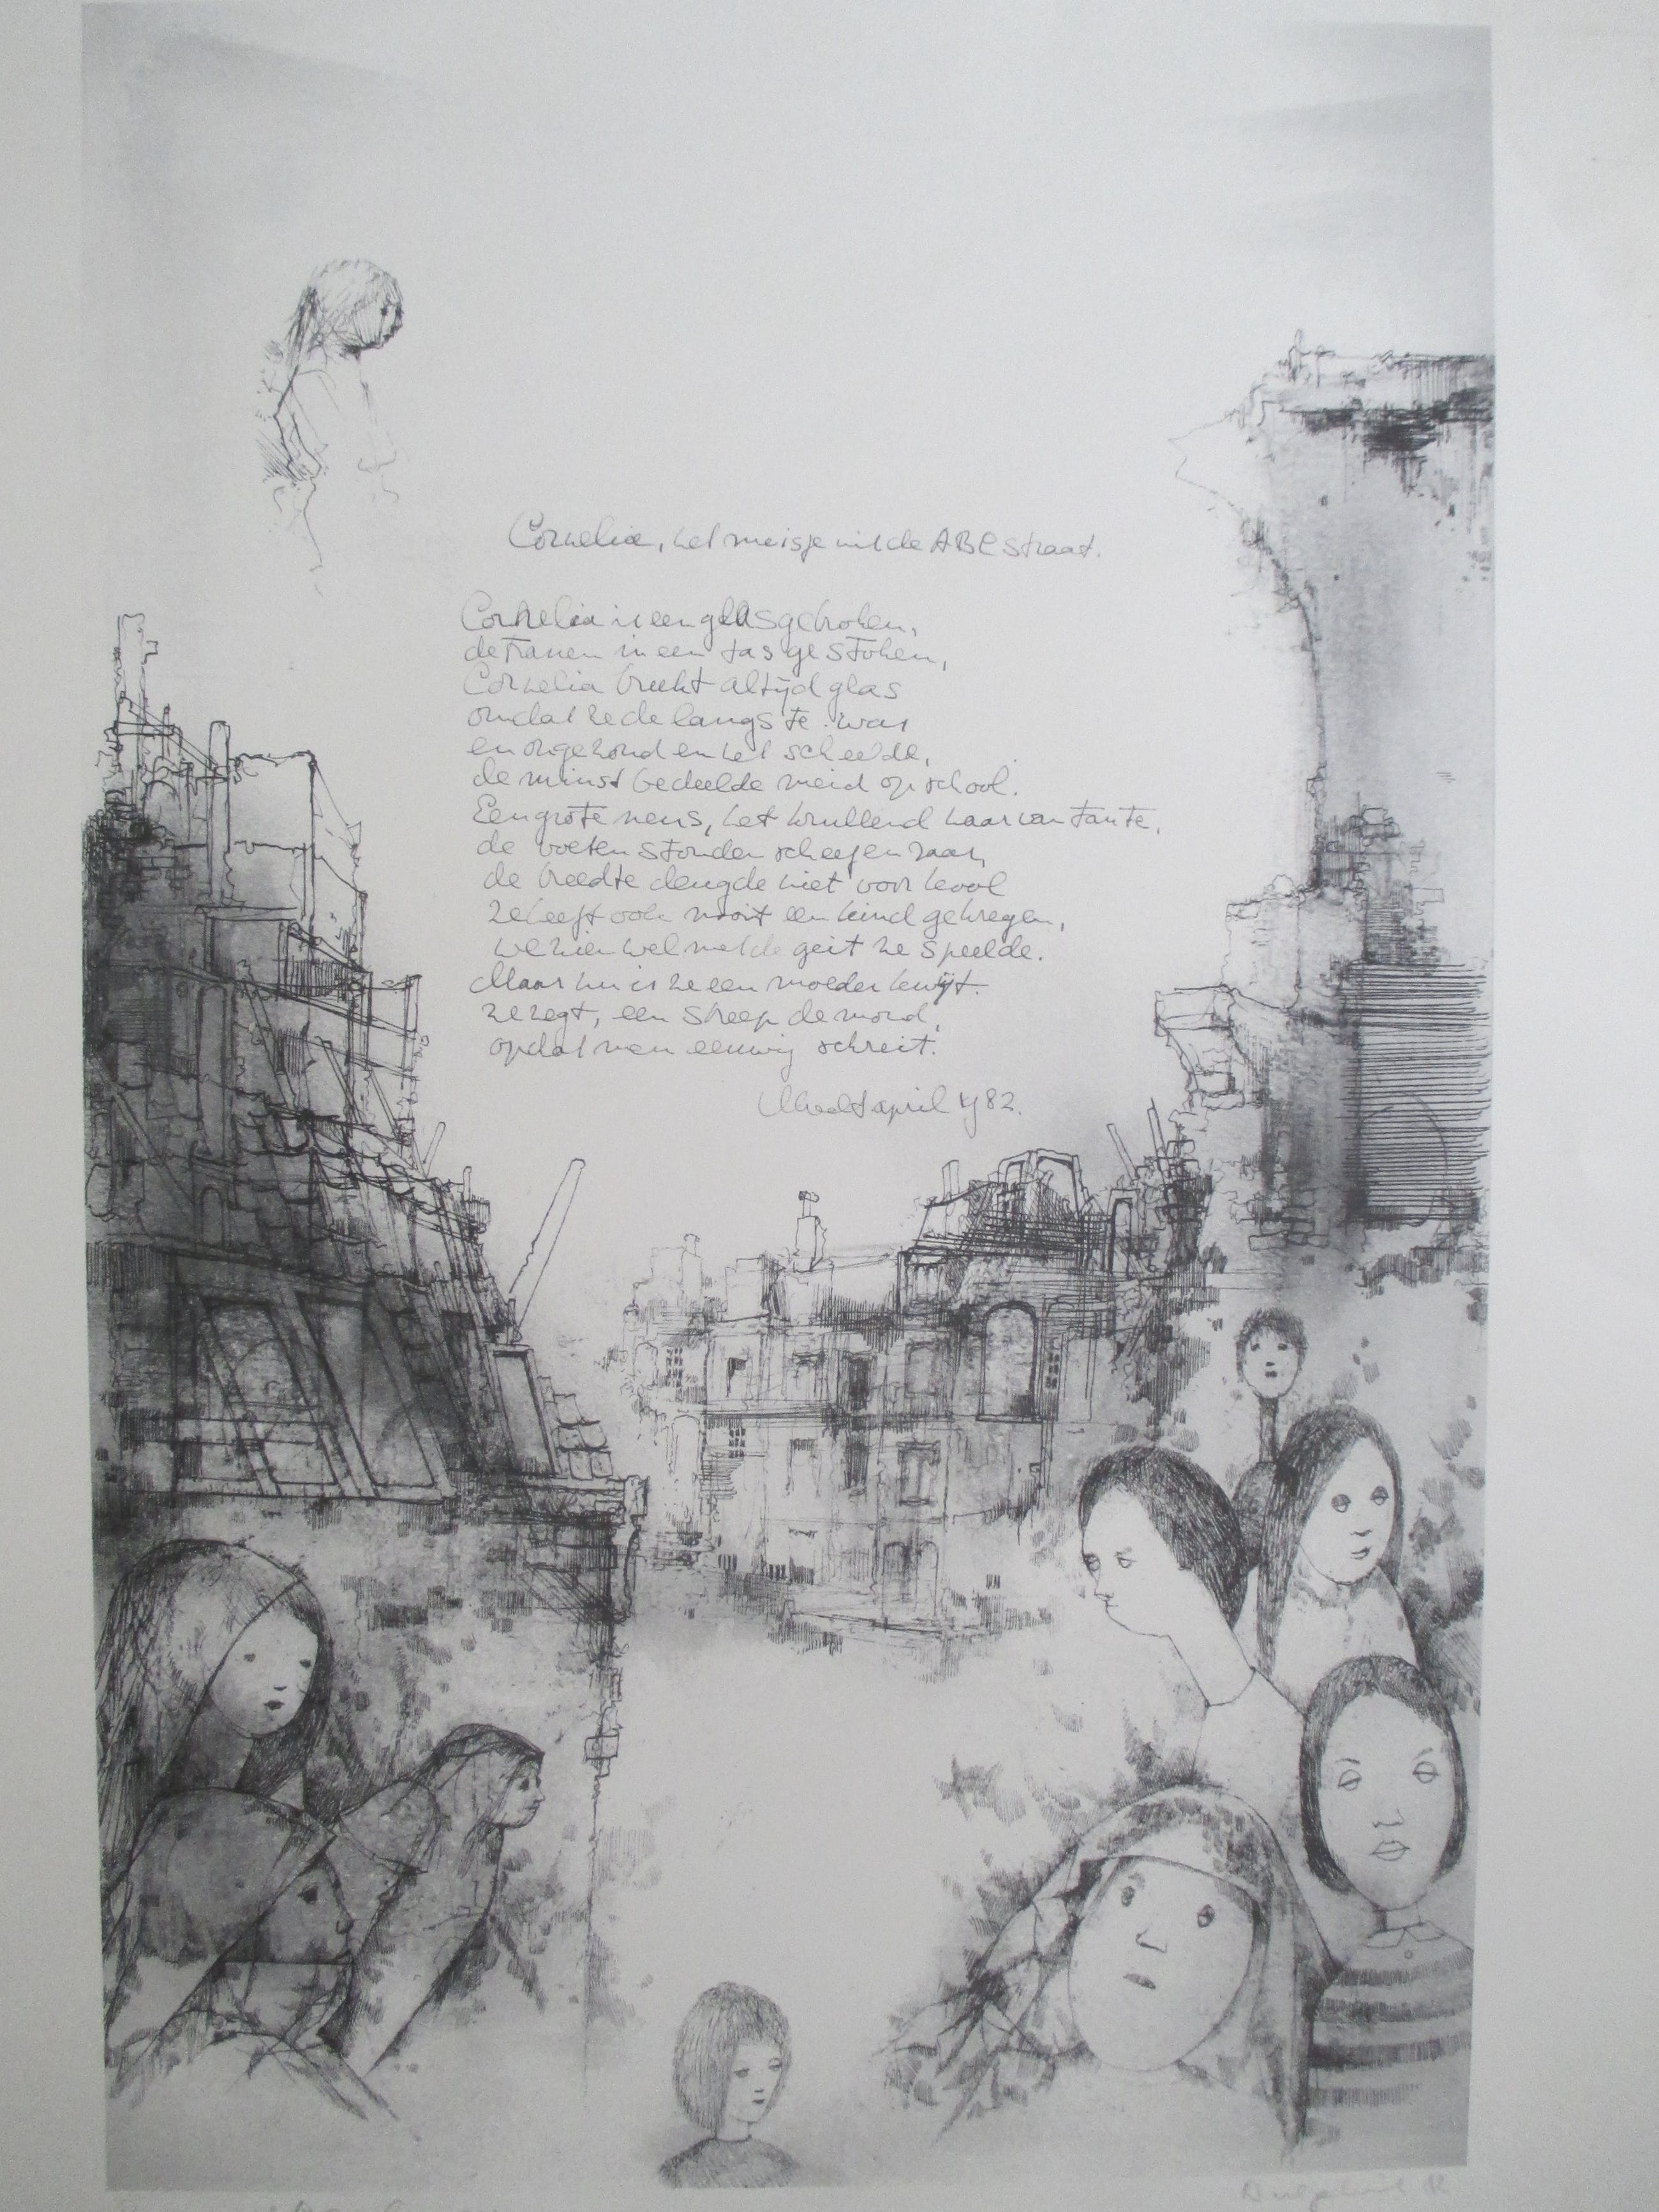 Cornelia, het meisje uit de ABC straat.
Cornelia is een glas gebroken,
de tranen in een tas gestoken,
Cornelia breekt altijd glas
omdat ze de langste was
en ongezond en het scheelde,
de minst bedeelde meid op school.
Een grote neus, het krullend haar van tante,
de voeten stonden scheef en raar,
de breedte deugde niet voor kool
ze heeft ook nooit een kind gekregen,
we zien wel met de geit ze speelde.
Maar nu is ze een moeder kwijt.
ze zegt, een streep de mond,
opdat men eeuwig schreit.
april 1982.